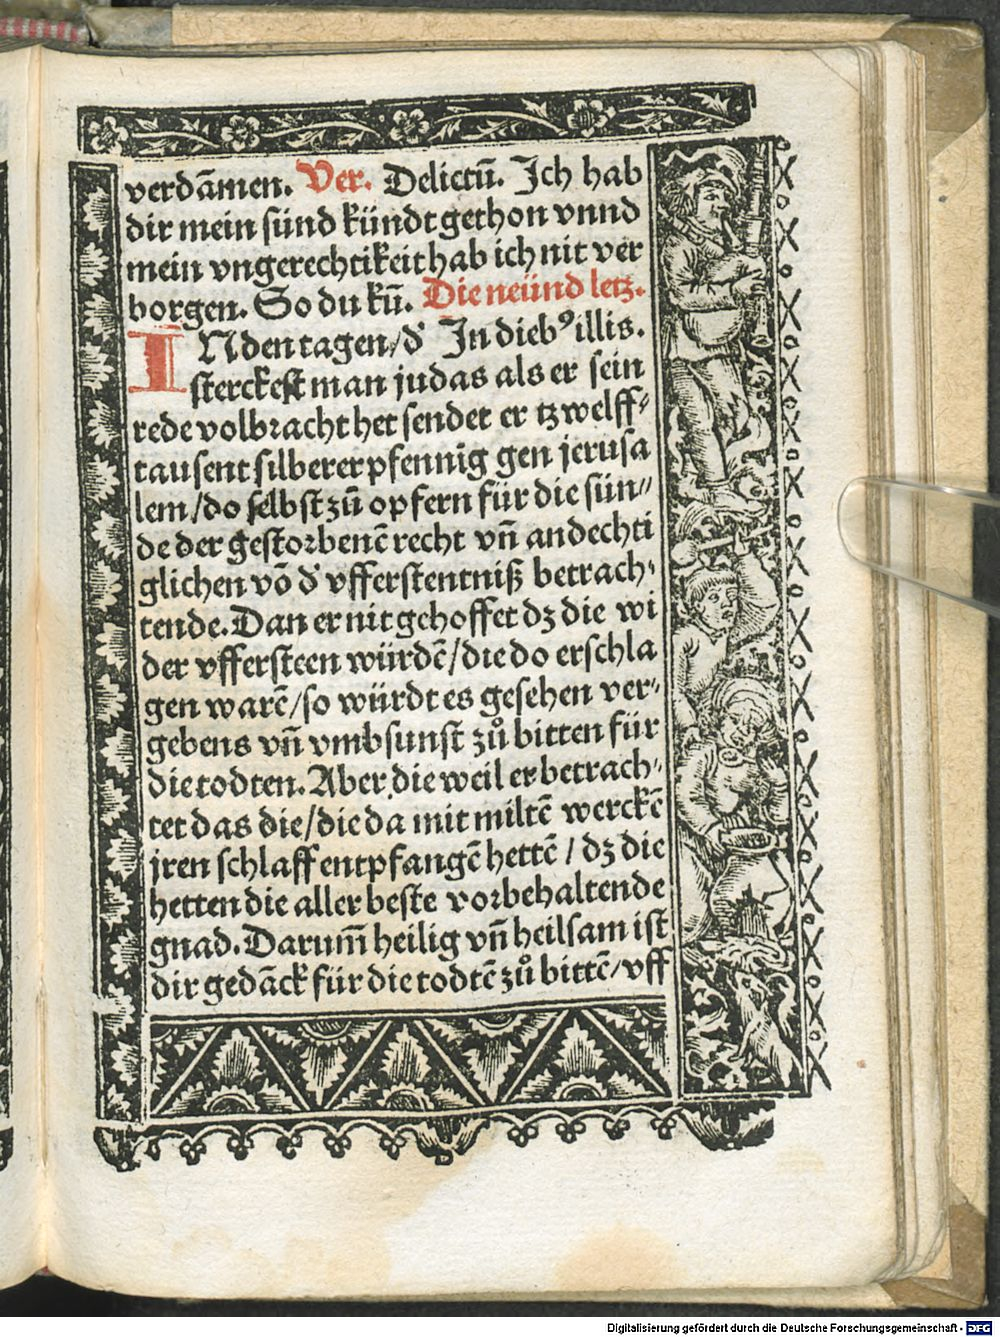 verdãmen. Ver. Delictũ. Ich hab
dir mein sünd kündt gethon vnnd
mein vngerechtikeit hab ich nit ver
borgen. So du kũ. Die neünd letz.
INden tagen/d' In dieb⁹ illis.
sterckest man judas als er sein
rede volbracht het sendet er tzwelff⸗
tausent silberer pfennig gen jerusa
lem/do selbst zů opfern für die sün⸗
de der gestorbenẽ recht vñ andechti
glichen võ d' vfferstentniß betrach⸗
tende. Dan er nit gehoffet dz die wi
der vffersteen würdẽ/die do erschla
gen warẽ/so würdt es gesehen ver⸗
gebens vñ vmbsunst zů bitten für
die todten. Aber die weil er betrach⸗
tet das die/die da mit miltẽ werckẽ
jren schlaff entpfangẽ hettẽ / dz die
hetten die aller beste vorbehaltende
gnad. Darum̃ heilig vñ heilsam ist
dir gedãck für die todtẽ zů bittẽ/vff
Digitalisierung gefördert durch die Deutsche Forschungsgemeinschaft - DFG